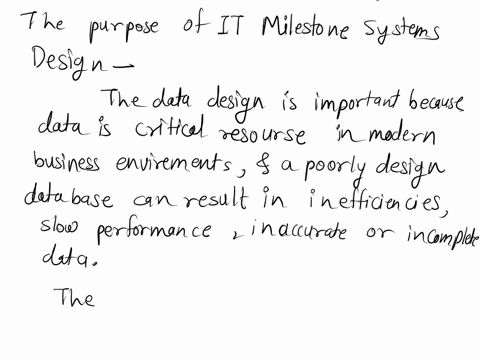 The purpose of IT Milestone Systems
Design -
The data design is important because
data is critical resourse in modern
business envirements, & a poorly design
database can result in inefficiencies,
slow performance, inaccurate or incomplete
data.
The